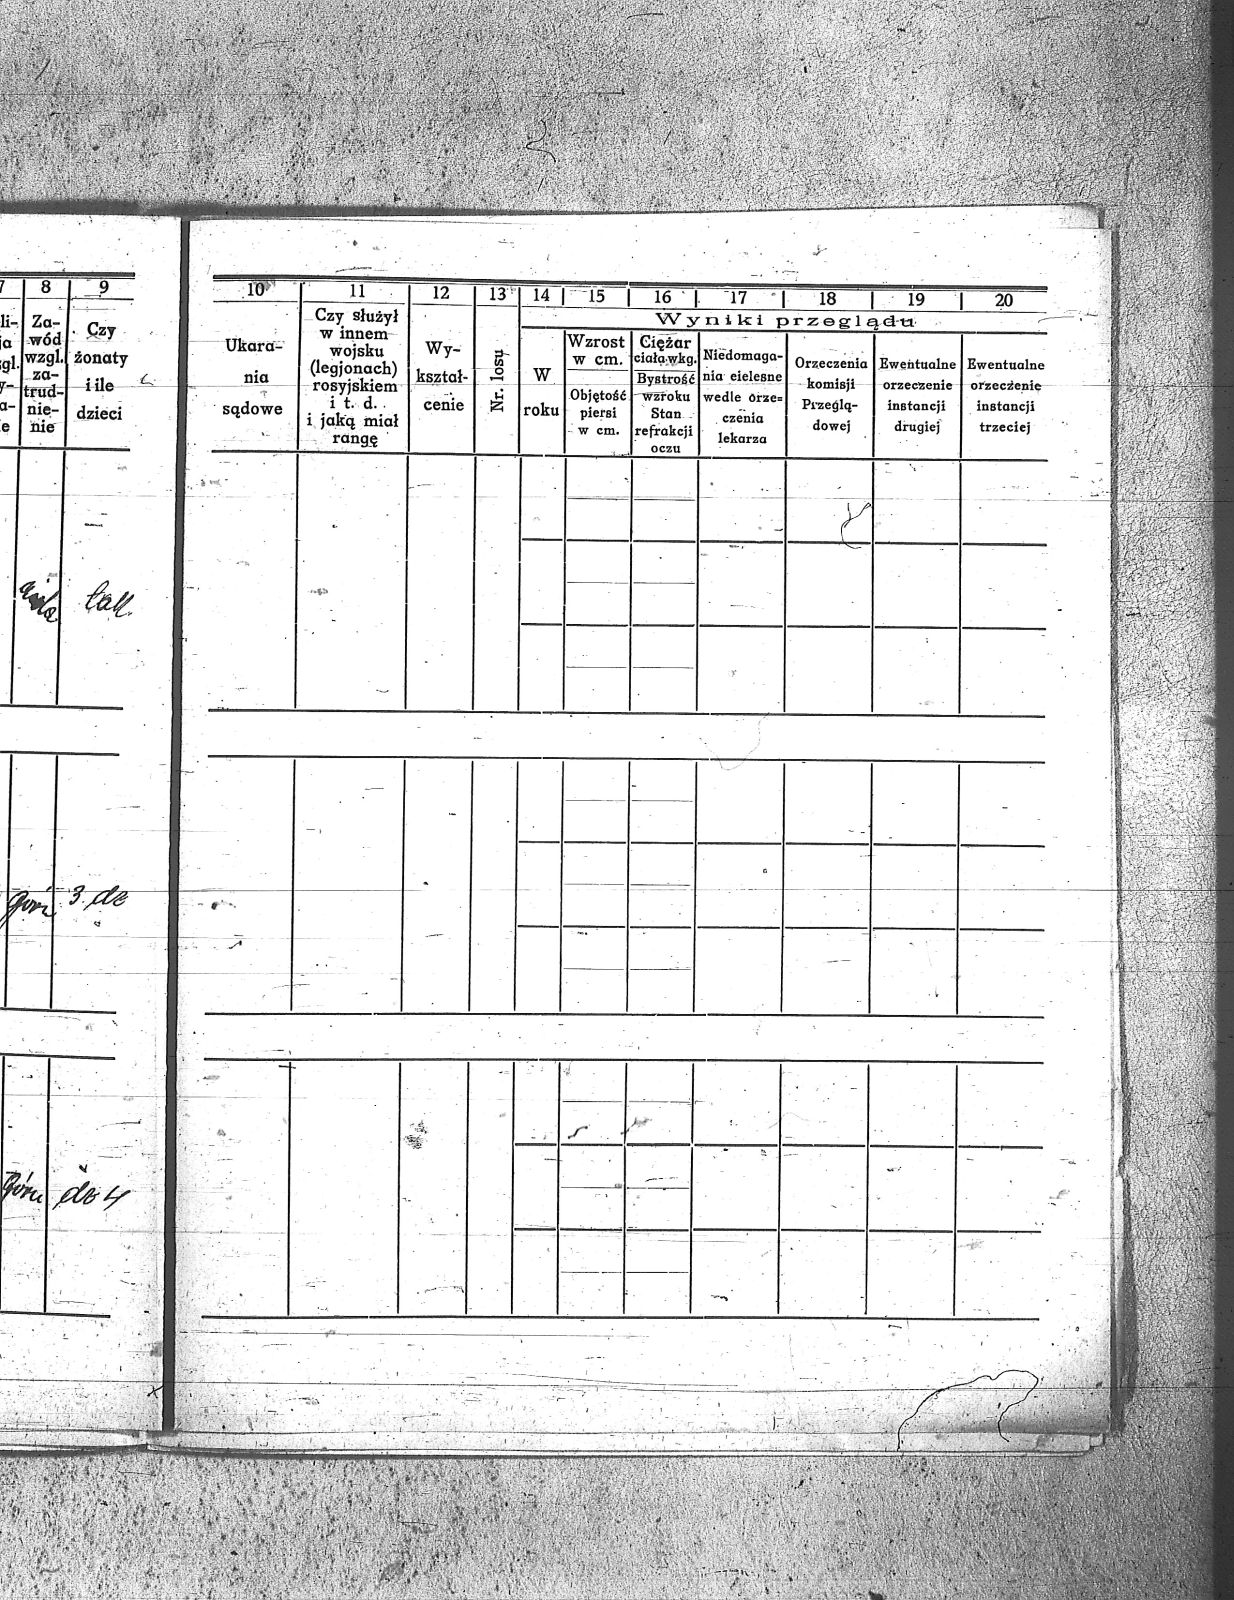 7 8 9
li-
ja
gl.
y-
a-
ie
Za-
wód
wzgl.
za-
trud-
nie-
nie
Czy
żonaty
i ile
dzieci
tak
góri 3 dz
Górn dz 4
10 11 12 13 14 15 16 17 18 19 20
Wyniki przeglądu
Ukara-
nia
sądowe
Czy służył
w innem
wojsku
(legjonach)
rosyjskiem
i t. d.
i jaką miał
rangę
Wy-
kształ-
cenie
Nr. losu
W
roku
Wzrost
w cm.
Objętość
piersi
w cm.
Ciężar
ciała wkg.
Bystrość
wzroku
Stan
refrakcji
oczu
Niedomaga-
nia cielesne
wedle orze=
czenia
lekarza
Orzeczenia
komisji
Przeglą-
dowej
Ewentualne
orzeczenie
instancji
drugiej
Ewentualne
orzeczenie
instancji
trzeciej